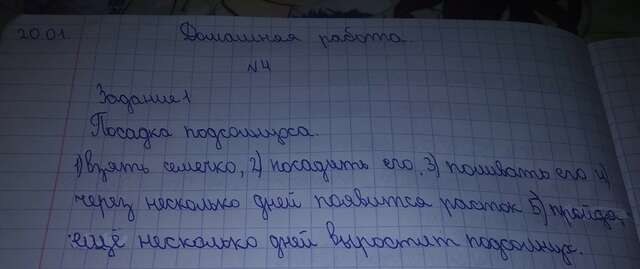 20.01. Домашняя работа.
№4
Задание 1
Посадка подсолнуха.
1) взять семечко, 2) посадить его, 3) поливать его 4)
через несколько дней появится росток 5) пройдя,
ещё несколько дней выростит подсолнух.